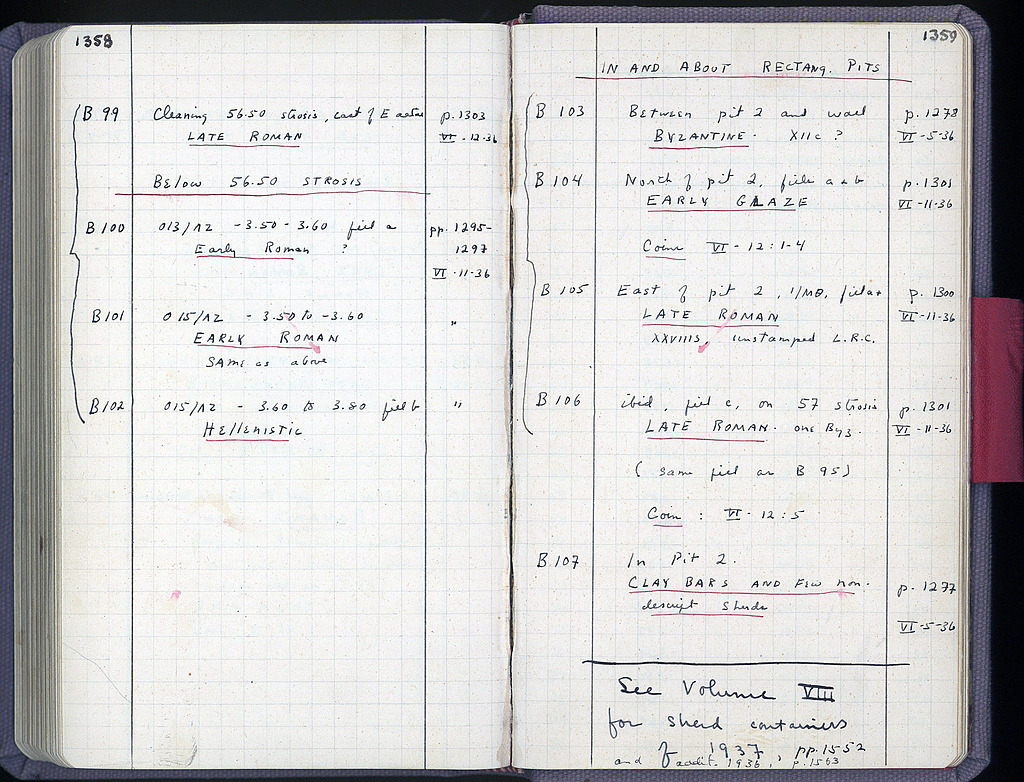 1358
B 99 Cleaning 56.50 strosis, east of E p. 1303
LATE ROMAN VI - 12-36
Below 56.50 STROSIS
B 100 013/ΛΖ -3.50 - 3.60 pp. 1295-
Early Roman ? 1297
VI - 11-36
B 101 015/ΛΖ - 3.50 to -3.60 "
EARLY ROMAN
SAME as above
B 102 015/ΛΖ - 3.60 to 3.80 "
Hellenistic
1359
IN AND ABOUT RECTANG. PITS
B 103 Between pit 2 and wall p. 1278
BYZANTINE. XII c ? VI - 5-36
B 104 North of pit 2, a+b p. 1301
EARLY GLAZE VI - 11-36
Coins VI - 12: 1-4
B 105 East of pit 2, 1/ΜΘ, p. 1300
LATE ROMAN VI - 11-36
unstamped L.R.C.
B 106 ibid, c, on 57 strosis p. 1301
LATE ROMAN. one Byz. VI - 11-36
(same as B 95)
Coin : VI - 12:5
B 107 In Pit 2.
CLAY BARS AND FEW non- p. 1277
descript sherds
VI - 5-36
See Volume VIII
for sherd containers
of 1937, pp. 1552
and addit. 1936, p. 1563